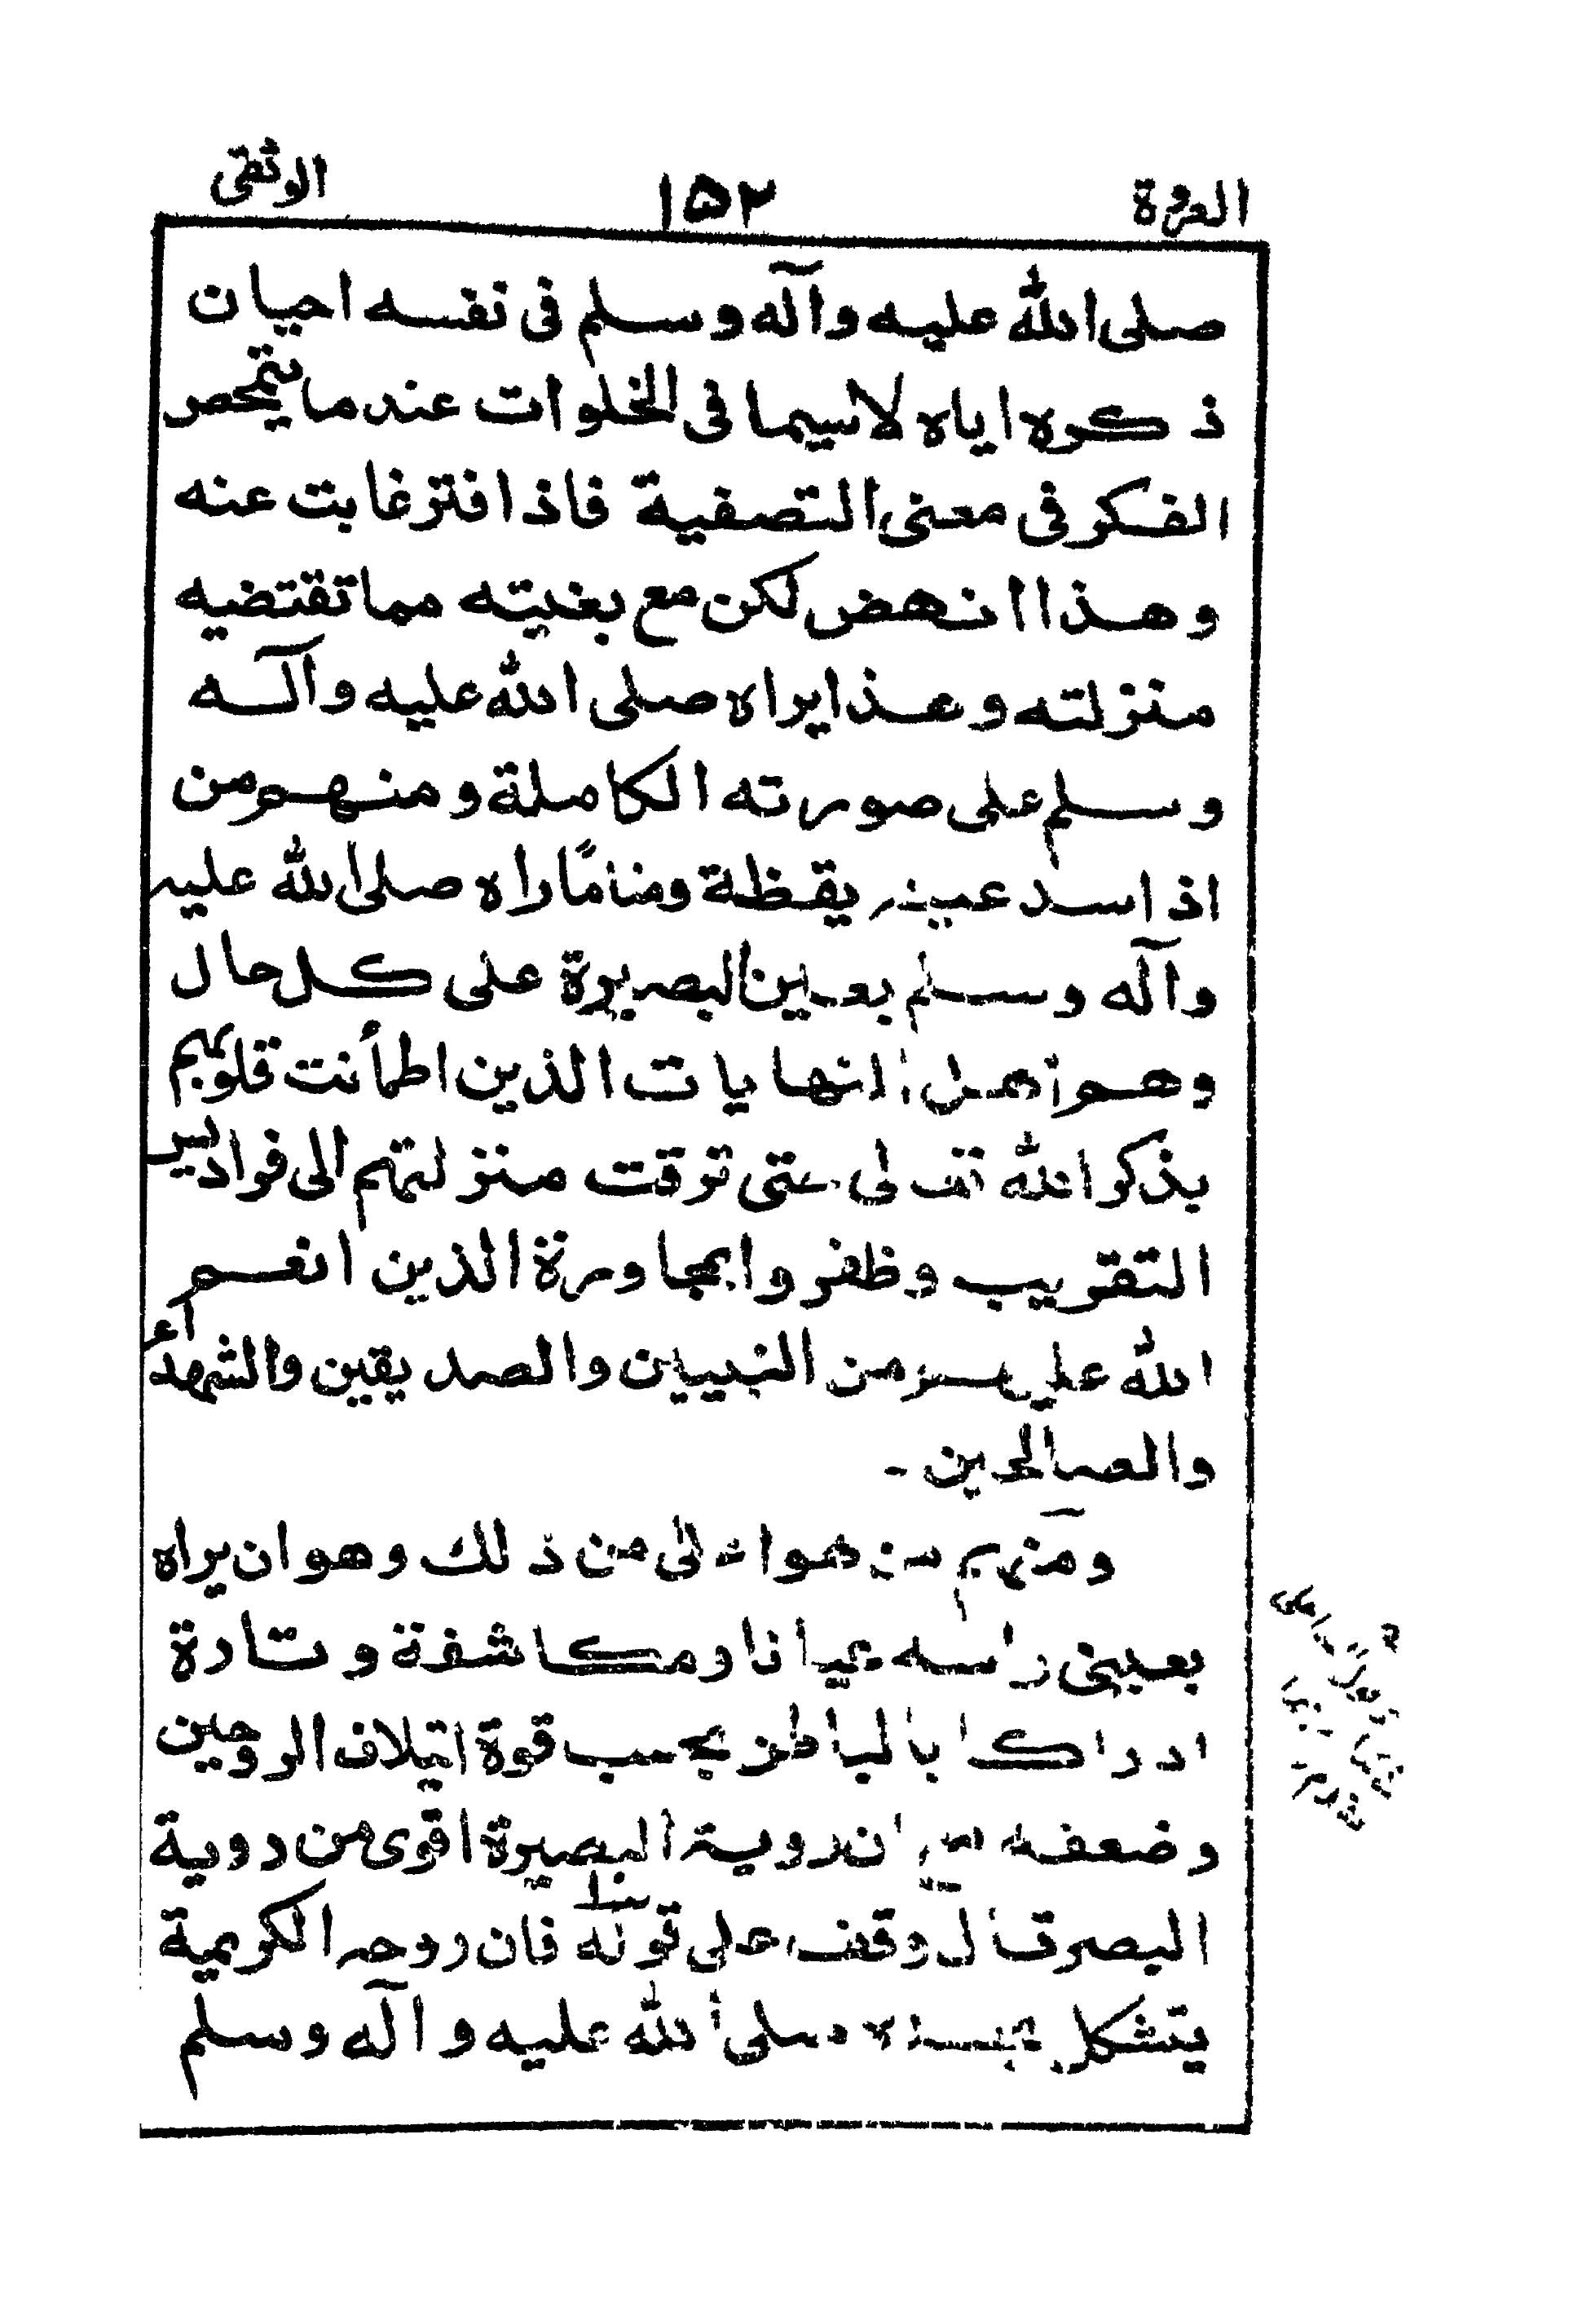 العروة ١٥٢ الوثقى
صلى الله عليه وآله وسلم فى نفسه احيان
ذكره اياه لاسيما فى الخلوات عندما يتمحص
الفكر فى معنى التصفية فاذا فتر غابت عنه
وهذا انهض لكن مع بغيته مما تقتضيه
منزلته وهذا يراه صلى الله عليه وآله
وسلم على صورته الكاملة ومنهم من
اذا سد عينه يقظة ومنامًا راه صلى الله عليه
وآله وسلم بعين البصيرة على كل حال
وهم اهل النهايات الذين اطمأنت قلوبهم
بذكر الله تعالى حتى ترقت منزلتهم الى فراديس
التقريب وظفروا بمجاورة الذين انعم
الله عليهم من النبيين والصديقين والشهدآء
والصالحين -
ومنهم من هو اعلى من ذلك وهو ان يراه
بعينى راسه عيانا ومكاشفة وتارة
ادراكا بالباطن بحسب قوة ايتلاف الروحين
وضعفه ان روية البصيرة اقوى من روية
البصر قال وقف على قوله فان روحه الكريمة
يتشكل بجسده صلى الله عليه وآله وسلم